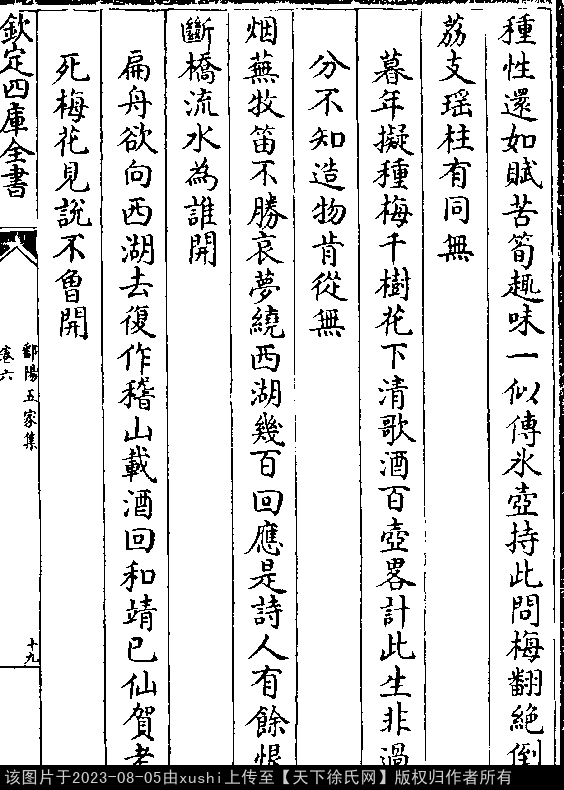 種性還如賦苦筍趣味一似傳氷壺持此問梅翻絶倒
荔支瑶柱有同無
暮年擬種梅千樹花下清歌酒百壺畧計此生非過
分不知造物肯從無
烟蕪牧笛不勝哀夢繞西湖幾百回應是詩人有餘恨
斷橋流水為誰開
扁舟欲向西湖去復作稽山載酒回和靖已仙賀老
死梅花見說不曽開
鄱陽五家集
卷六
十九
欽定四庫全書
该图片于2023-08-05由xushi上传至【天下徐氏网】版权归作者所有